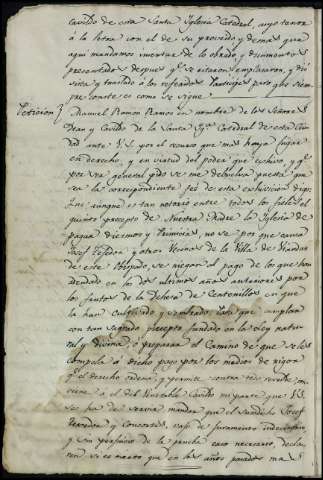 Cavildo de esta Santa Iglesia Catedral, cuyo tenor
á la letra con el de su proveido y demas que
aqui mandamos insertar de lo obrado, y documentos
presentados despues q.e se citaron, emplazaron, y dió
vista y traslado á los referidos Partícipes para q.e siem
pre conste es como se sigue
Peticion Manuel Ramon Ramos en nombre de los Señores
Dean y Cavildo de la Santa Ig.a Catedral de esta Ciu
dad ante V.S. por el recurso que mas haya lugar
en derecho, y en virtud del poder que exhivo, y q.e
por ser general pido se me debuelva puesta que
sea la correspondiente feé de esta exhivicion digo:
Que aunque es tan notorio entre todos los fieles el
quinto precepto de Nuestra Madre la Iglesia de
pagar diezmos y Primicias, no se por que causa
Josef Texedor y otros Vecinos de la Villa de
de este Obispado, se niegan al pago de los que han
adeudado en los dos ultimos años anteriores por
los frutos de la Dehesa de Centenillos en que
la han cultivado y sembrado. Para que cumplan
con tan sagrado precepto fundado en la Ley natu
ral y divina, ó preparar el Camino de que se les
compela á dicho pago por los medios de rigor
q.e el derecho ordena y permite contra todo rebelde, con
viene á el del Venerable Cavildo mi parte, que V.S.
se ha de servir mandar que el susodicho Josef
Texedor y Consortes, vajo de juramento indecisorio
y sin perjuicio de la prueba caso necesario, decla
ren si es cierto que en los años pasados